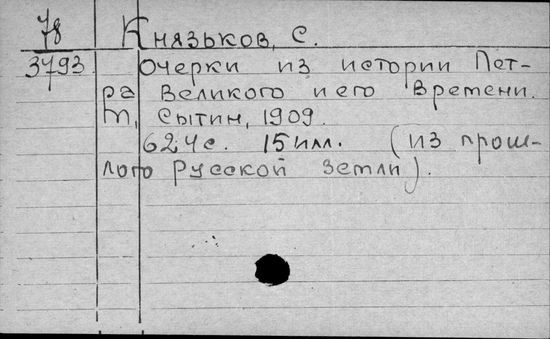 78 Князьков, С.
3793. Очерки из истории Пет-
ра Великого и его времени.
М, Сытин, 1909.
624с. 15 илл. (из прош-
лого Русской земли).